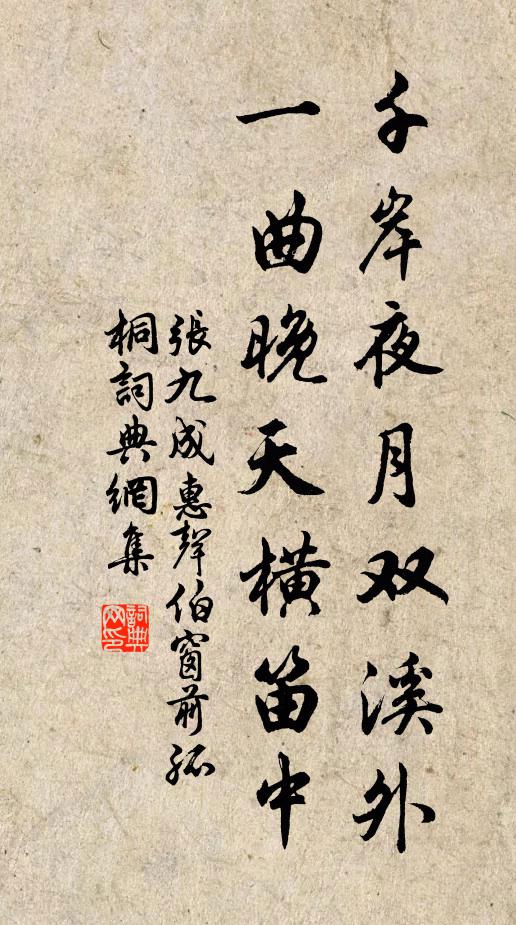 千岸夜月双溪外
一曲晚天横笛中
張九成惠聲伯窗前孤
桐詞典網集
詞典网印